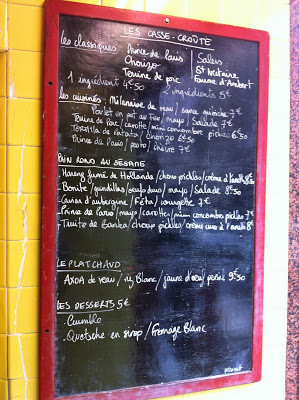 LES CASSE-CROÛTE
Les classiques: Prince de Paris Salers
Chorizo St Nectaire
Terrine de porc Fourme d'Ambert
1 ingrédient 4€50 2 ingrédients 5€
Les cuisinés: - Milanaise de veau / sans quinche 7€
- Poulet en pot au feu / mayo / Salade 7€
- Terrine de Porc / carotte / mini concombre pickles 6€50
- Tortilla de Patata / Chorizo 6€50
- Prince de Paris / pesto / chèvre 7€
PAIN ROND AU SÉSAME
- Hareng fumé de Hollande / choux pickles / crème à l'aneth 8€50
- Bonite / guindillas / mayo / Salade 8€50
- Caviar d'aubergine / Féta / courgette 7€
- Prince de Paris / mayo / carotte / mini concombre pickles 7€
- Truite de Banka / choux pickles / crème crue à l'aneth 8€
LE PLAT CHAUD
- AXOA de veau / riz Blanc / jaune d'oeuf 9€50
LES DESSERTS 5€
- Crumble
- Quetsche en sirop / fromage Blanc